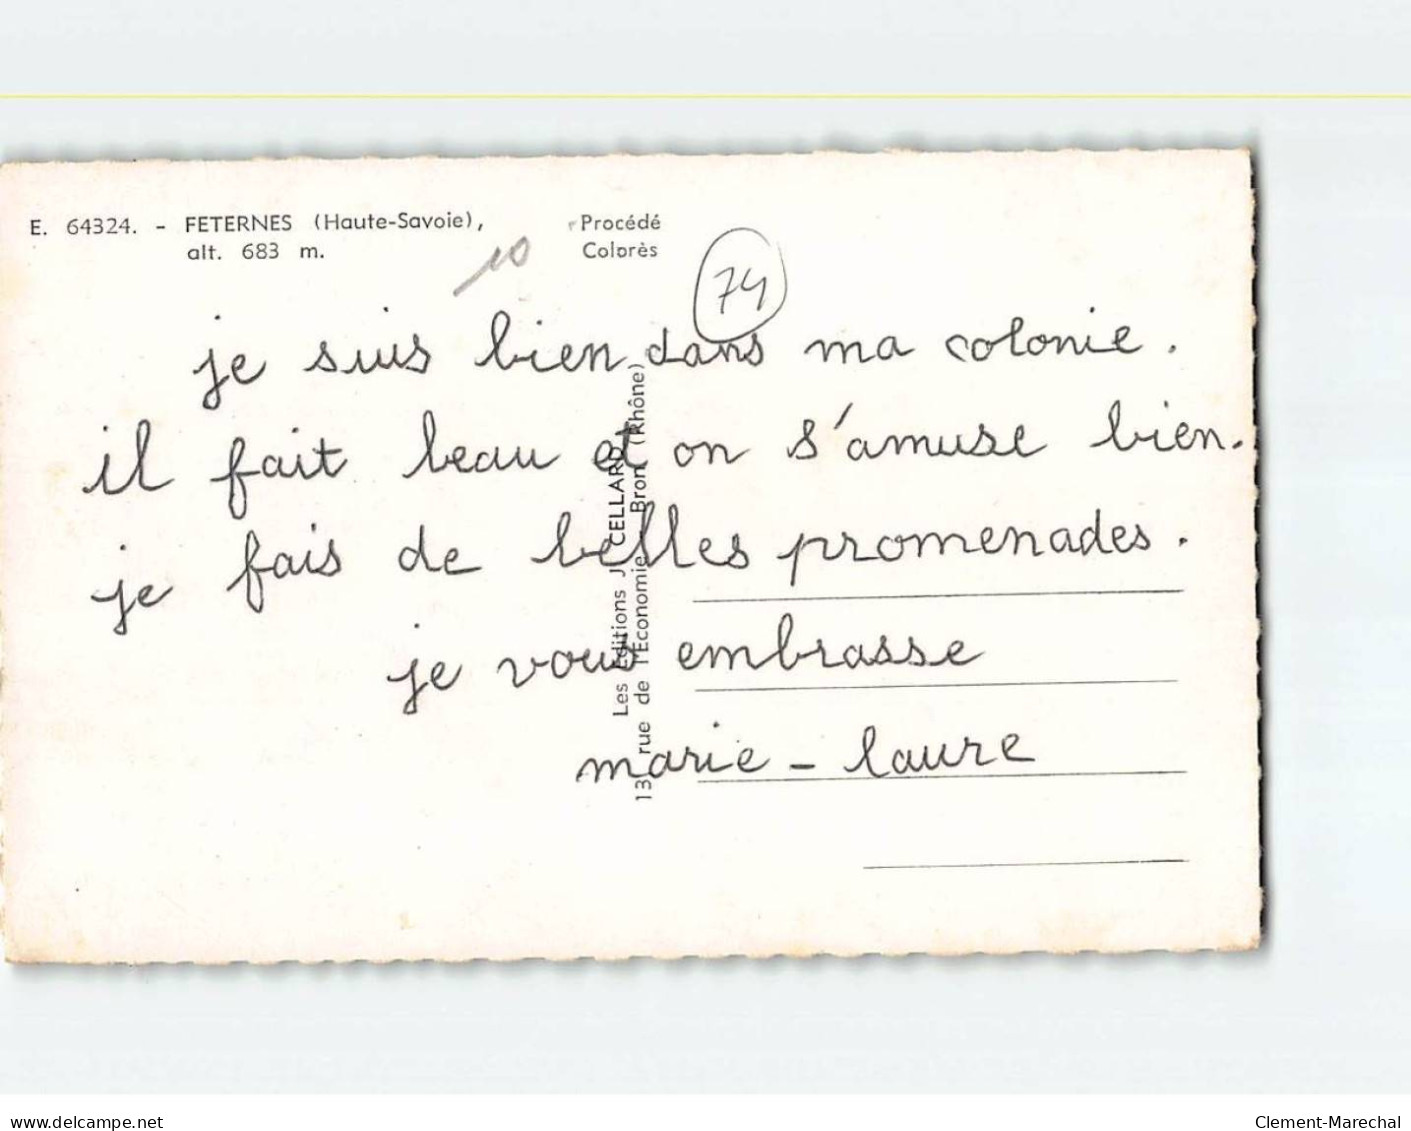 E. 64324. - FETERNES (Haute-Savoie),
alt. 683 m.
Procédé
Colorès
10
74
je suis bien dans ma colonie.
il fait beau et on s'amuse bien.
je fais de belles promenades.
je vous embrasse
marie - laure
Les Editions J. CELLARD
13, rue de l'Economie, Bron (Rhône)
www.delcampe.net
Clement-Marechal